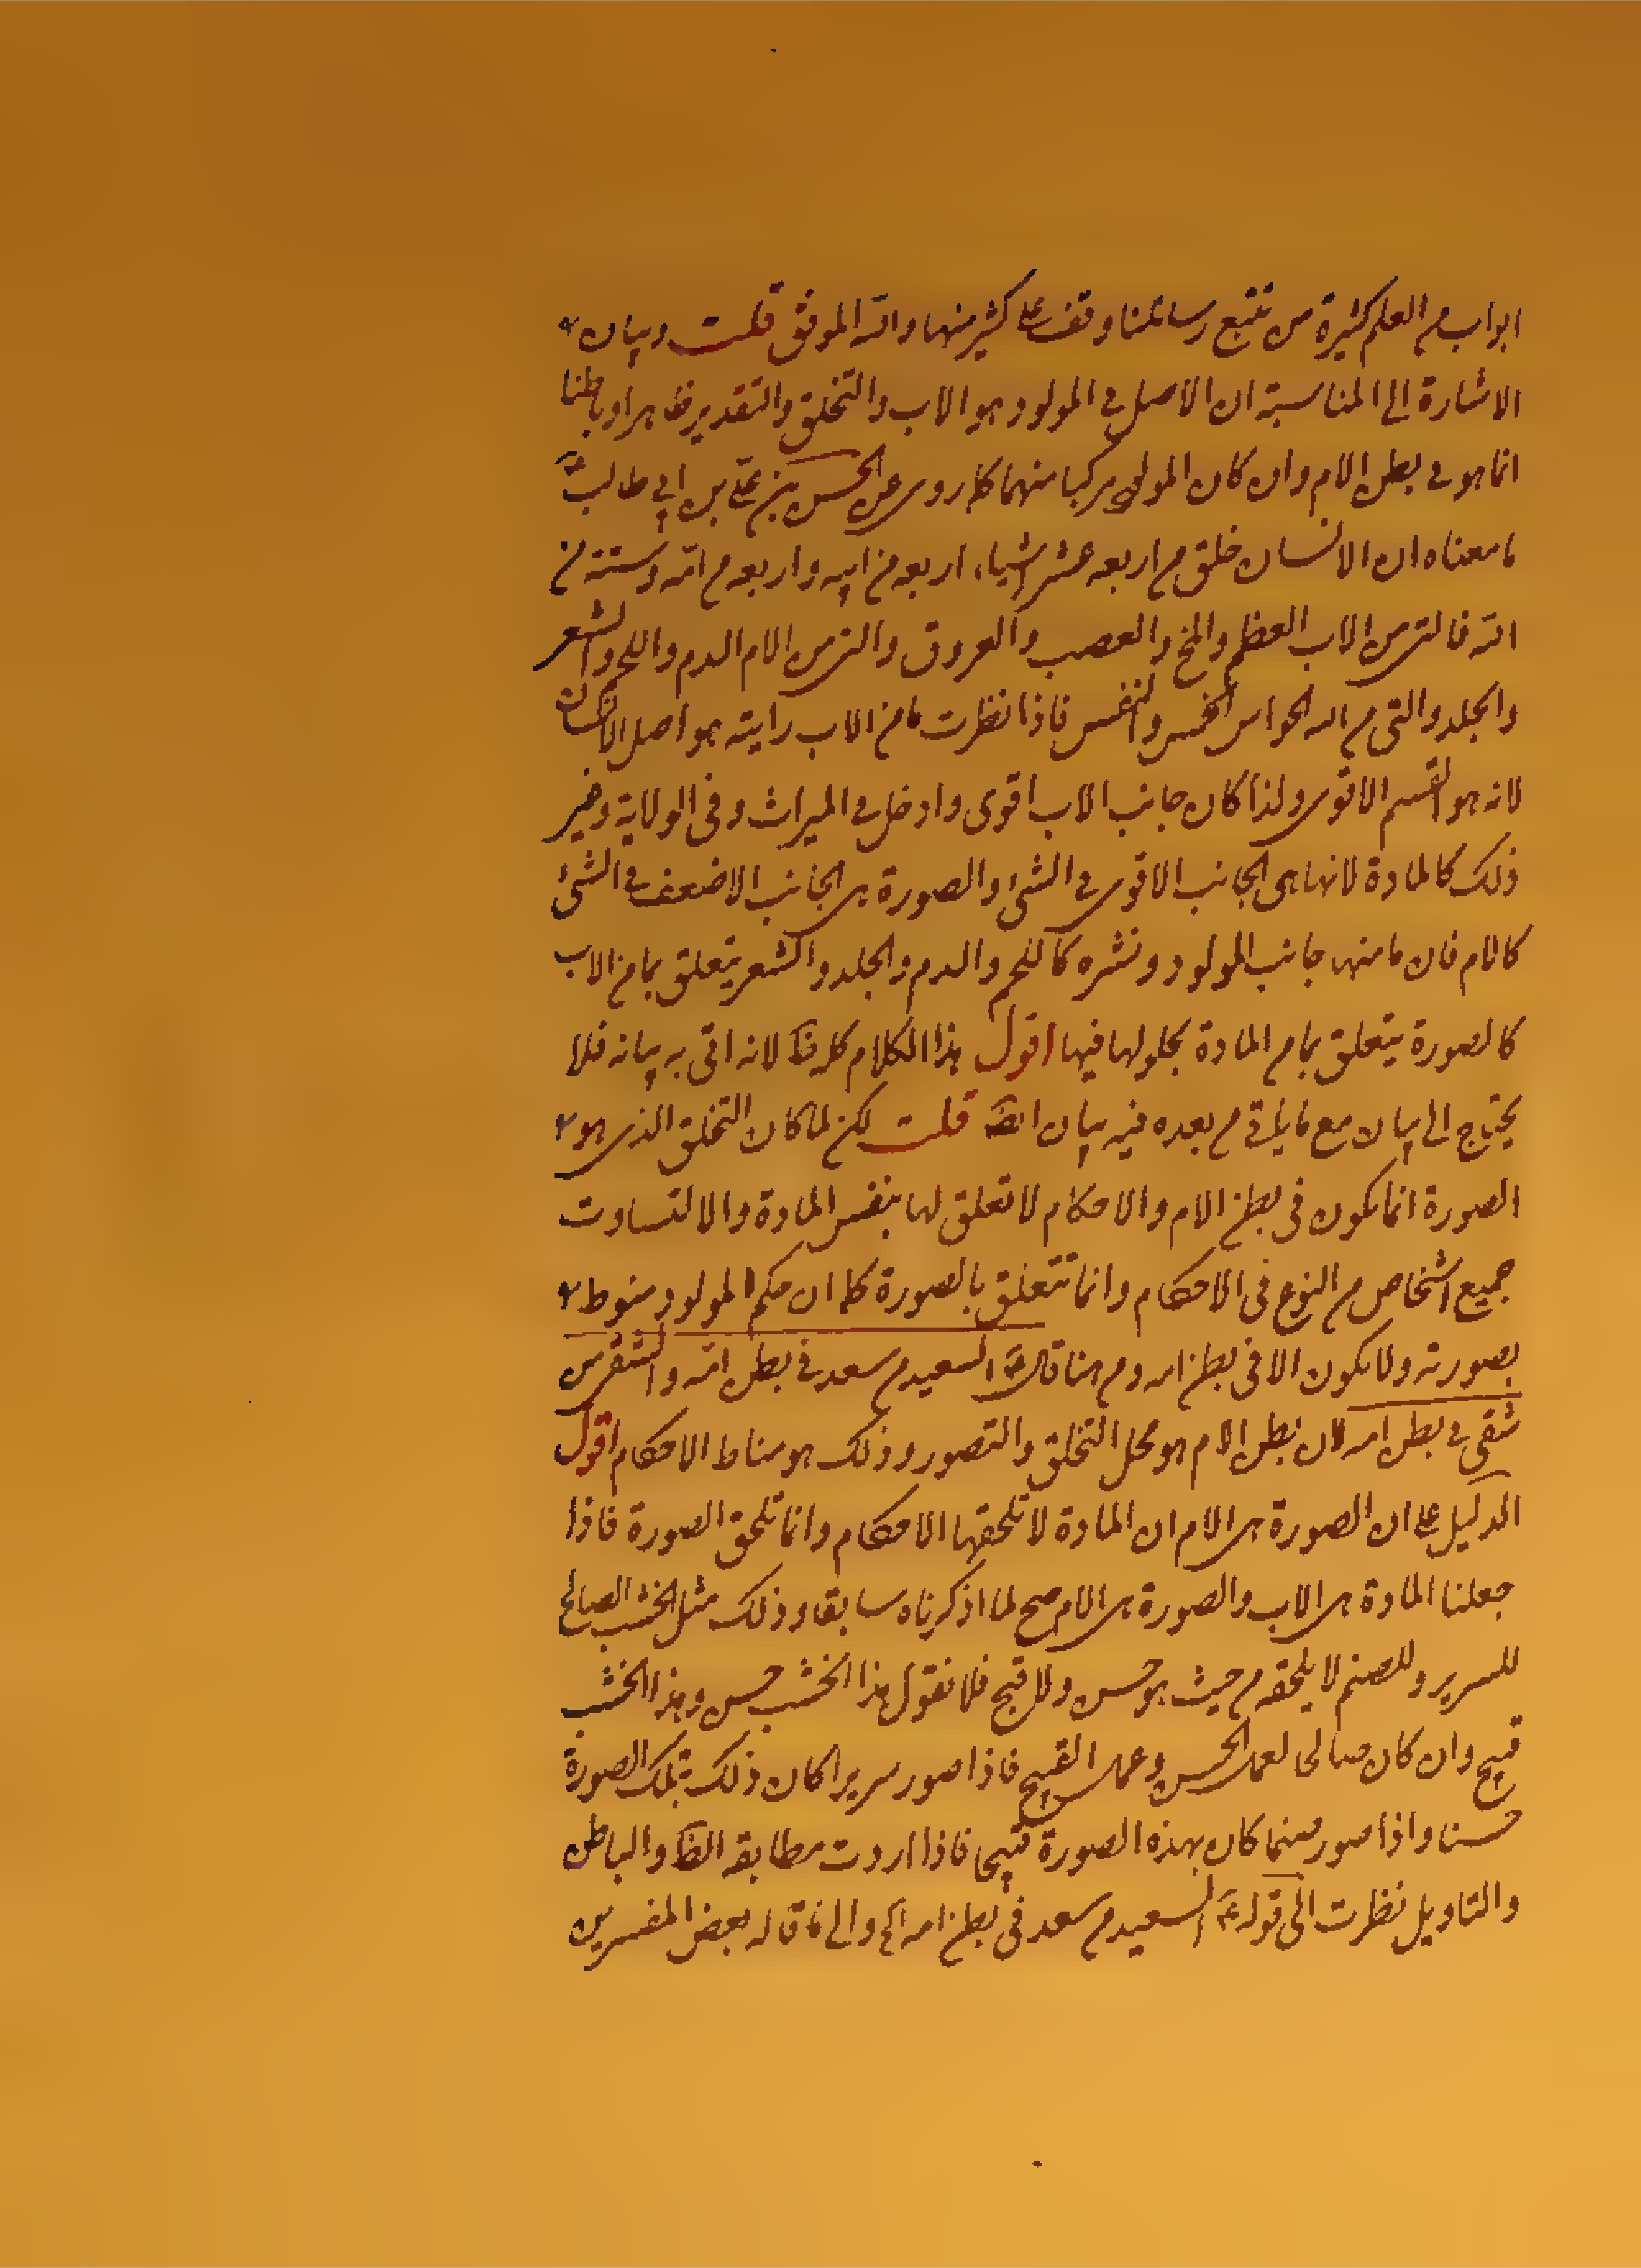 ابواب من العلم كثيرة من تتبع رسائلنا وقف على كثير منها والله الموفق قلت وبيان
الاشارة الى المناسبة ان الاصل في المولود هو الاب والتخلق والتقدير ظاهرا وباطنا
انما هو في بطن الام وان كان المولود مركبا منهما كما روى عن الحسن بن على بن ابي طالب ع
ما معناه ان الانسان خلق من اربعه عشر اشياء اربعه من ابيه واربعه من امّه وستة من
الله فالتى من الاب العظم والمخ والعصب والعروق والتى من الام الدم واللحم والشعر
والجلد والتى من الله الحواس الخمس والنفس فاذا نظرت ما من الاب رايته هو اصل الانسان
لانه هو القسم الاقوى ولذا كان جانب الاب اقوى وادخل في الميراث وفى الولاية وغير
ذلك كالمادة لانها هى الجانب الاقوى في الشئ والصورة هى الجانب الاضعف في الشئ
كالام فان ما منها جانب المولود ونشره كاللحم والدم والجلد والشعر يتعلق بما من الاب
كالصورة يتعلق بما من المادة بحلولها فيها اقول هذا الكلام كله ظ لانه اتى به بيانه فلا
يحتاج الى بيان مع ما ياتى من بعده فيه بيان ايضا قلت لكن لما كان التخلق الذى هو
الصورة انما يكون فى بطن الام والاحكام لا تعلق لها بنفس المادة والا لتساوت
جميع اشخاص من النوع فى الاحكام وانما تتعلق بالصورة كما ان حكم المولود منوط
بصورته ولا يكون الا فى بطن امه ومن هنا قال ع السعيد من سعد في بطن امّه والشقى من
شقى في بطن امه لان بطن الام هو محل التخلق والتصور وذلك هو مناط الاحكام اقول
الدليل على ان الصورة هى الام ان المادة لا تلحقها الاحكام وانما تلحق الصورة فاذا
جعلنا المادة هى الاب والصورة هى الام صح لما اذكرناه سابقا وذلك مثل الخشب الصالح
للسرير وللصنم لا يلحقه من حيث هو حسن ولا قبح فلا نقول هذا الخشب حسن وهذا الخشب
قبيح وان كان صالحا لعمل الحسن وعمل القبيح فاذا صور سريرا كان ذلك بتلك الصورة
حسنا واذا صور صنما كان بهذه الصورة قبيحا فاذا اردت مطابقة الظ والباطن
والتاويل نظرت الى قوله ع السعيد من سعد فى بطن امه الخ والى ما قاله بعض المفسرين